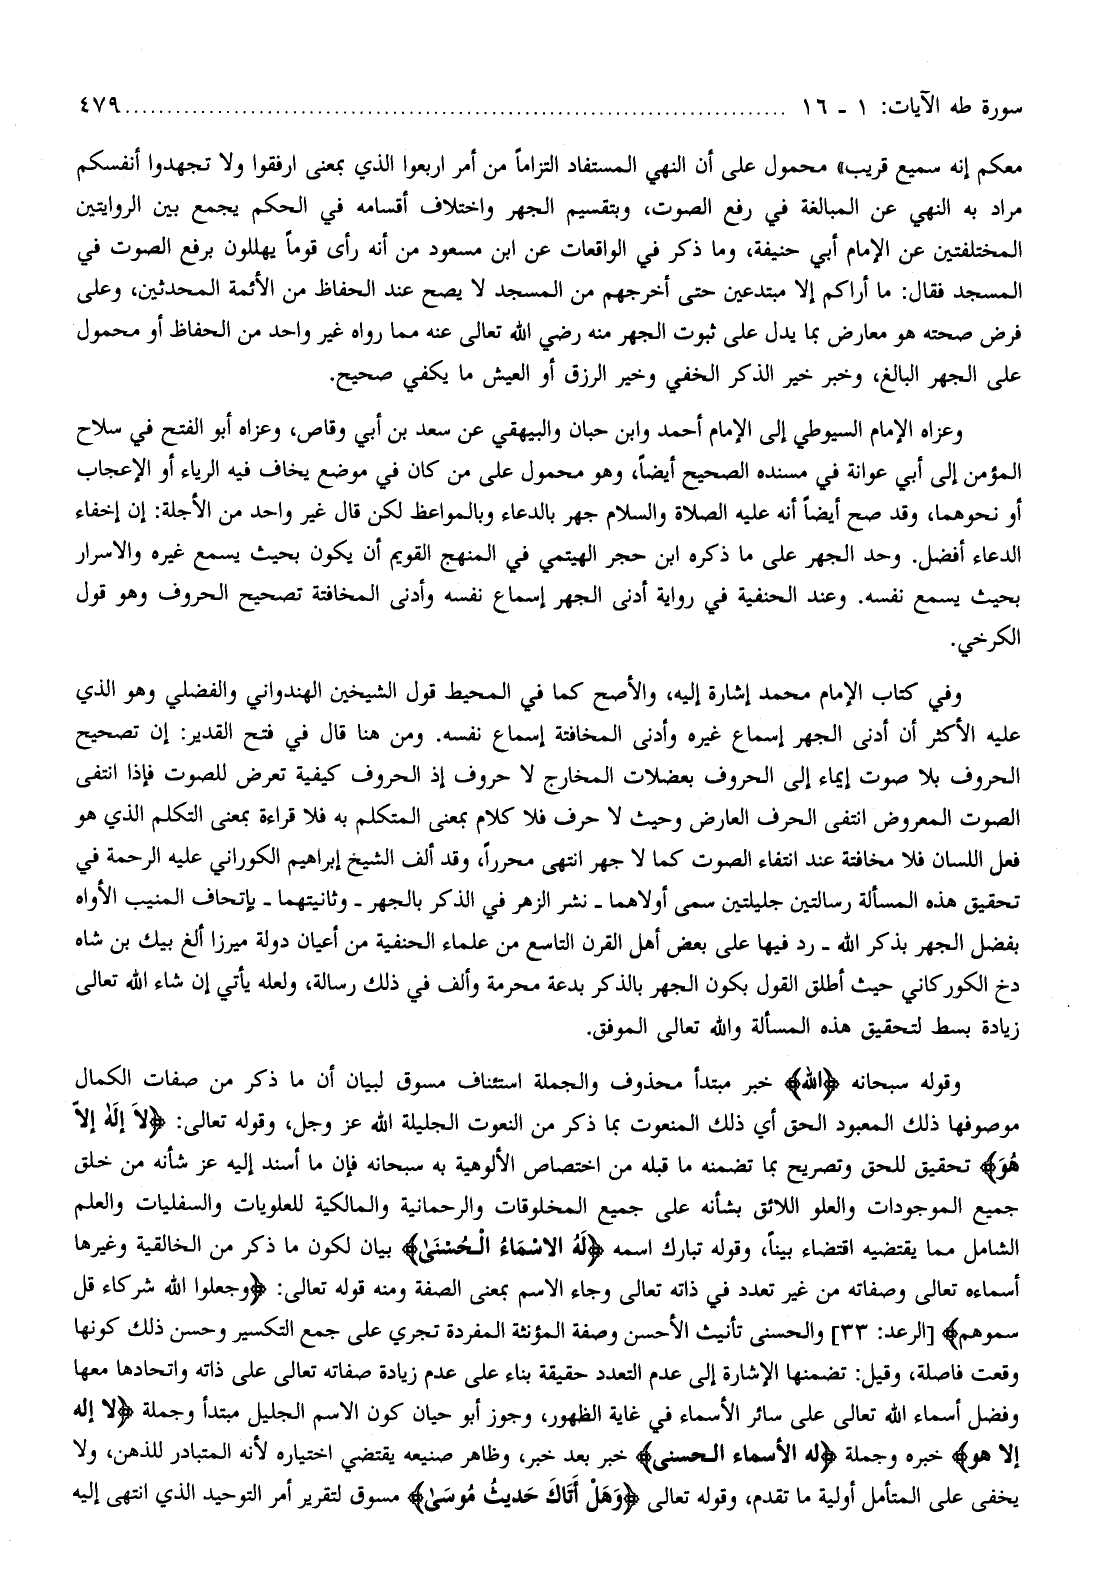 سورة طه الآيات: ١ ـ ١٦ ........................................................................... ٤٧٩
معكم إنه سميع قريب» محمول على أن النهي المستفاد التزاماً من أمر اربعوا الذي بمعنى ارفقوا ولا تجهدوا أنفسكم
مراد به النهي عن المبالغة في رفع الصوت، وبتقسيم الجهر واختلاف أقسامه في الحكم يجمع بين الروايتين
المختلفتين عن الإمام أبي حنيفة، وما ذكر في الواقعات عن ابن مسعود من أنه رأى قوماً يهللون برفع الصوت في
المسجد فقال: ما أراكم إلا مبتدعين حتى أخرجهم من المسجد لا يصح عند الحفاظ من الأئمة المحدثين، وعلى
فرض صحته هو معارض بما يدل على ثبوت الجهر منه رضي الله تعالى عنه مما رواه غير واحد من الحفاظ أو محمول
على الجهر البالغ، وخبر خير الذكر الخفي وخير الرزق أو العيش ما يكفي صحيح.
وعزاه الإمام السيوطي إلى الإمام أحمد وابن حبان والبيهقي عن سعد بن أبي وقاص، وعزاه أبو الفتح في سلاح
المؤمن إلى أبي عوانة في مسنده الصحيح أيضاً، وهو محمول على من كان في موضع يخاف فيه الرياء أو الإعجاب
أو نحوهما، وقد صح أيضاً أنه عليه الصلاة والسلام جهر بالدعاء وبالمواعظ لكن قال غير واحد من الأجلة: إن إخفاء
الدعاء أفضل. وحد الجهر على ما ذكره ابن حجر الهيتمي في المنهج القويم أن يكون بحيث يسمع غيره والاسرار
بحيث يسمع نفسه. وعند الحنفية في رواية أدنى الجهر إسماع نفسه وأدنى المخافتة تصحيح الحروف وهو قول
الكرخي.
وفي كتاب الإمام محمد إشارة إليه، والأصح كما في المحيط قول الشيخين الهندواني والفضلي وهو الذي
عليه الأكثر أن أدنى الجهر إسماع غيره وأدنى المخافتة إسماع نفسه. ومن هنا قال في فتح القدير: إن تصحيح
الحروف بلا صوت إيماء إلى الحروف بعضلات المخارج لا حروف إذ الحروف كيفية تعرض للصوت فإذا انتفى
الصوت المعروض انتفى الحرف العارض وحيث لا حرف فلا كلام بمعنى المتكلم به فلا قراءة بمعنى التكلم الذي هو
فعل اللسان فلا مخافتة عند انتفاء الصوت كما لا جهر انتهى محرراً، وقد ألف الشيخ إبراهيم الكوراني عليه الرحمة في
تحقيق هذه المسألة رسالتين جليلتين سمى أولاهما ـ نشر الزهر في الذكر بالجهر ـ وثانيتهما ـ بإتحاف المنيب الأواه
بفضل الجهر بذكر الله ـ رد فيها على بعض أهل القرن التاسع من علماء الحنفية من أعيان دولة ميرزا ألغ بيك بن شاه
دخ الكوركاني حيث أطلق القول بكون الجهر بالذكر بدعة محرمة وألف في ذلك رسالة، ولعله يأتي إن شاء الله تعالى
زيادة بسط لتحقيق هذه المسألة والله تعالى الموفق.
وقوله سبحانه ﴿الله﴾ خبر مبتدأ محذوف والجملة استئناف مسوق لبيان أن ما ذكر من صفات الكمال
موصوفها ذلك المعبود الحق أي ذلك المنعوت بما ذكر من النعوت الجليلة الله عز وجل، وقوله تعالى: ﴿لاَ إِلَهَ إلاّ
هُوَ﴾ تحقيق للحق وتصريح بما تضمنه ما قبله من اختصاص الألوهية به سبحانه فإن ما أسند إليه عز شأنه من خلق
جميع الموجودات والعلو اللائق بشأنه على جميع المخلوقات والرحمانية والمالكية للعلويات والسفليات والعلم
الشامل مما يقتضيه اقتضاء بيناً، وقوله تبارك اسمه ﴿لَهُ الاسْمَاءُ الْحُسْنَىٰ﴾ بيان لكون ما ذكر من الخالقية وغيرها
أسماءه تعالى وصفاته من غير تعدد في ذاته تعالى وجاء الاسم بمعنى الصفة ومنه قوله تعالى: ﴿وجعلوا الله شركاء قل
سموهم﴾ [الرعد: ٣٣] والحسنى تأنيث الأحسن وصفة المؤنثة المفردة تجري على جمع التكسير وحسن ذلك كونها
وقعت فاصلة، وقيل: تضمنها الإشارة إلى عدم التعدد حقيقة بناء على عدم زيادة صفاته تعالى على ذاته واتحادها معها
وفضل أسماء الله تعالى على سائر الأسماء في غاية الظهور، وجوز أبو حيان كون الاسم الجليل مبتدأ وجملة ﴿لا إله
إلا هو﴾ خبره وجملة ﴿له الأسماء الحسنى﴾ خبر بعد خبر، وظاهر صنيعه يقتضي اختياره لأنه المتبادر للذهن، ولا
يخفى على المتأمل أولية ما تقدم، وقوله تعالى ﴿وَهَلْ أَتَاكَ حَديثُ مُوسَىٰ﴾ مسوق لتقرير أمر التوحيد الذي انتهى إليه